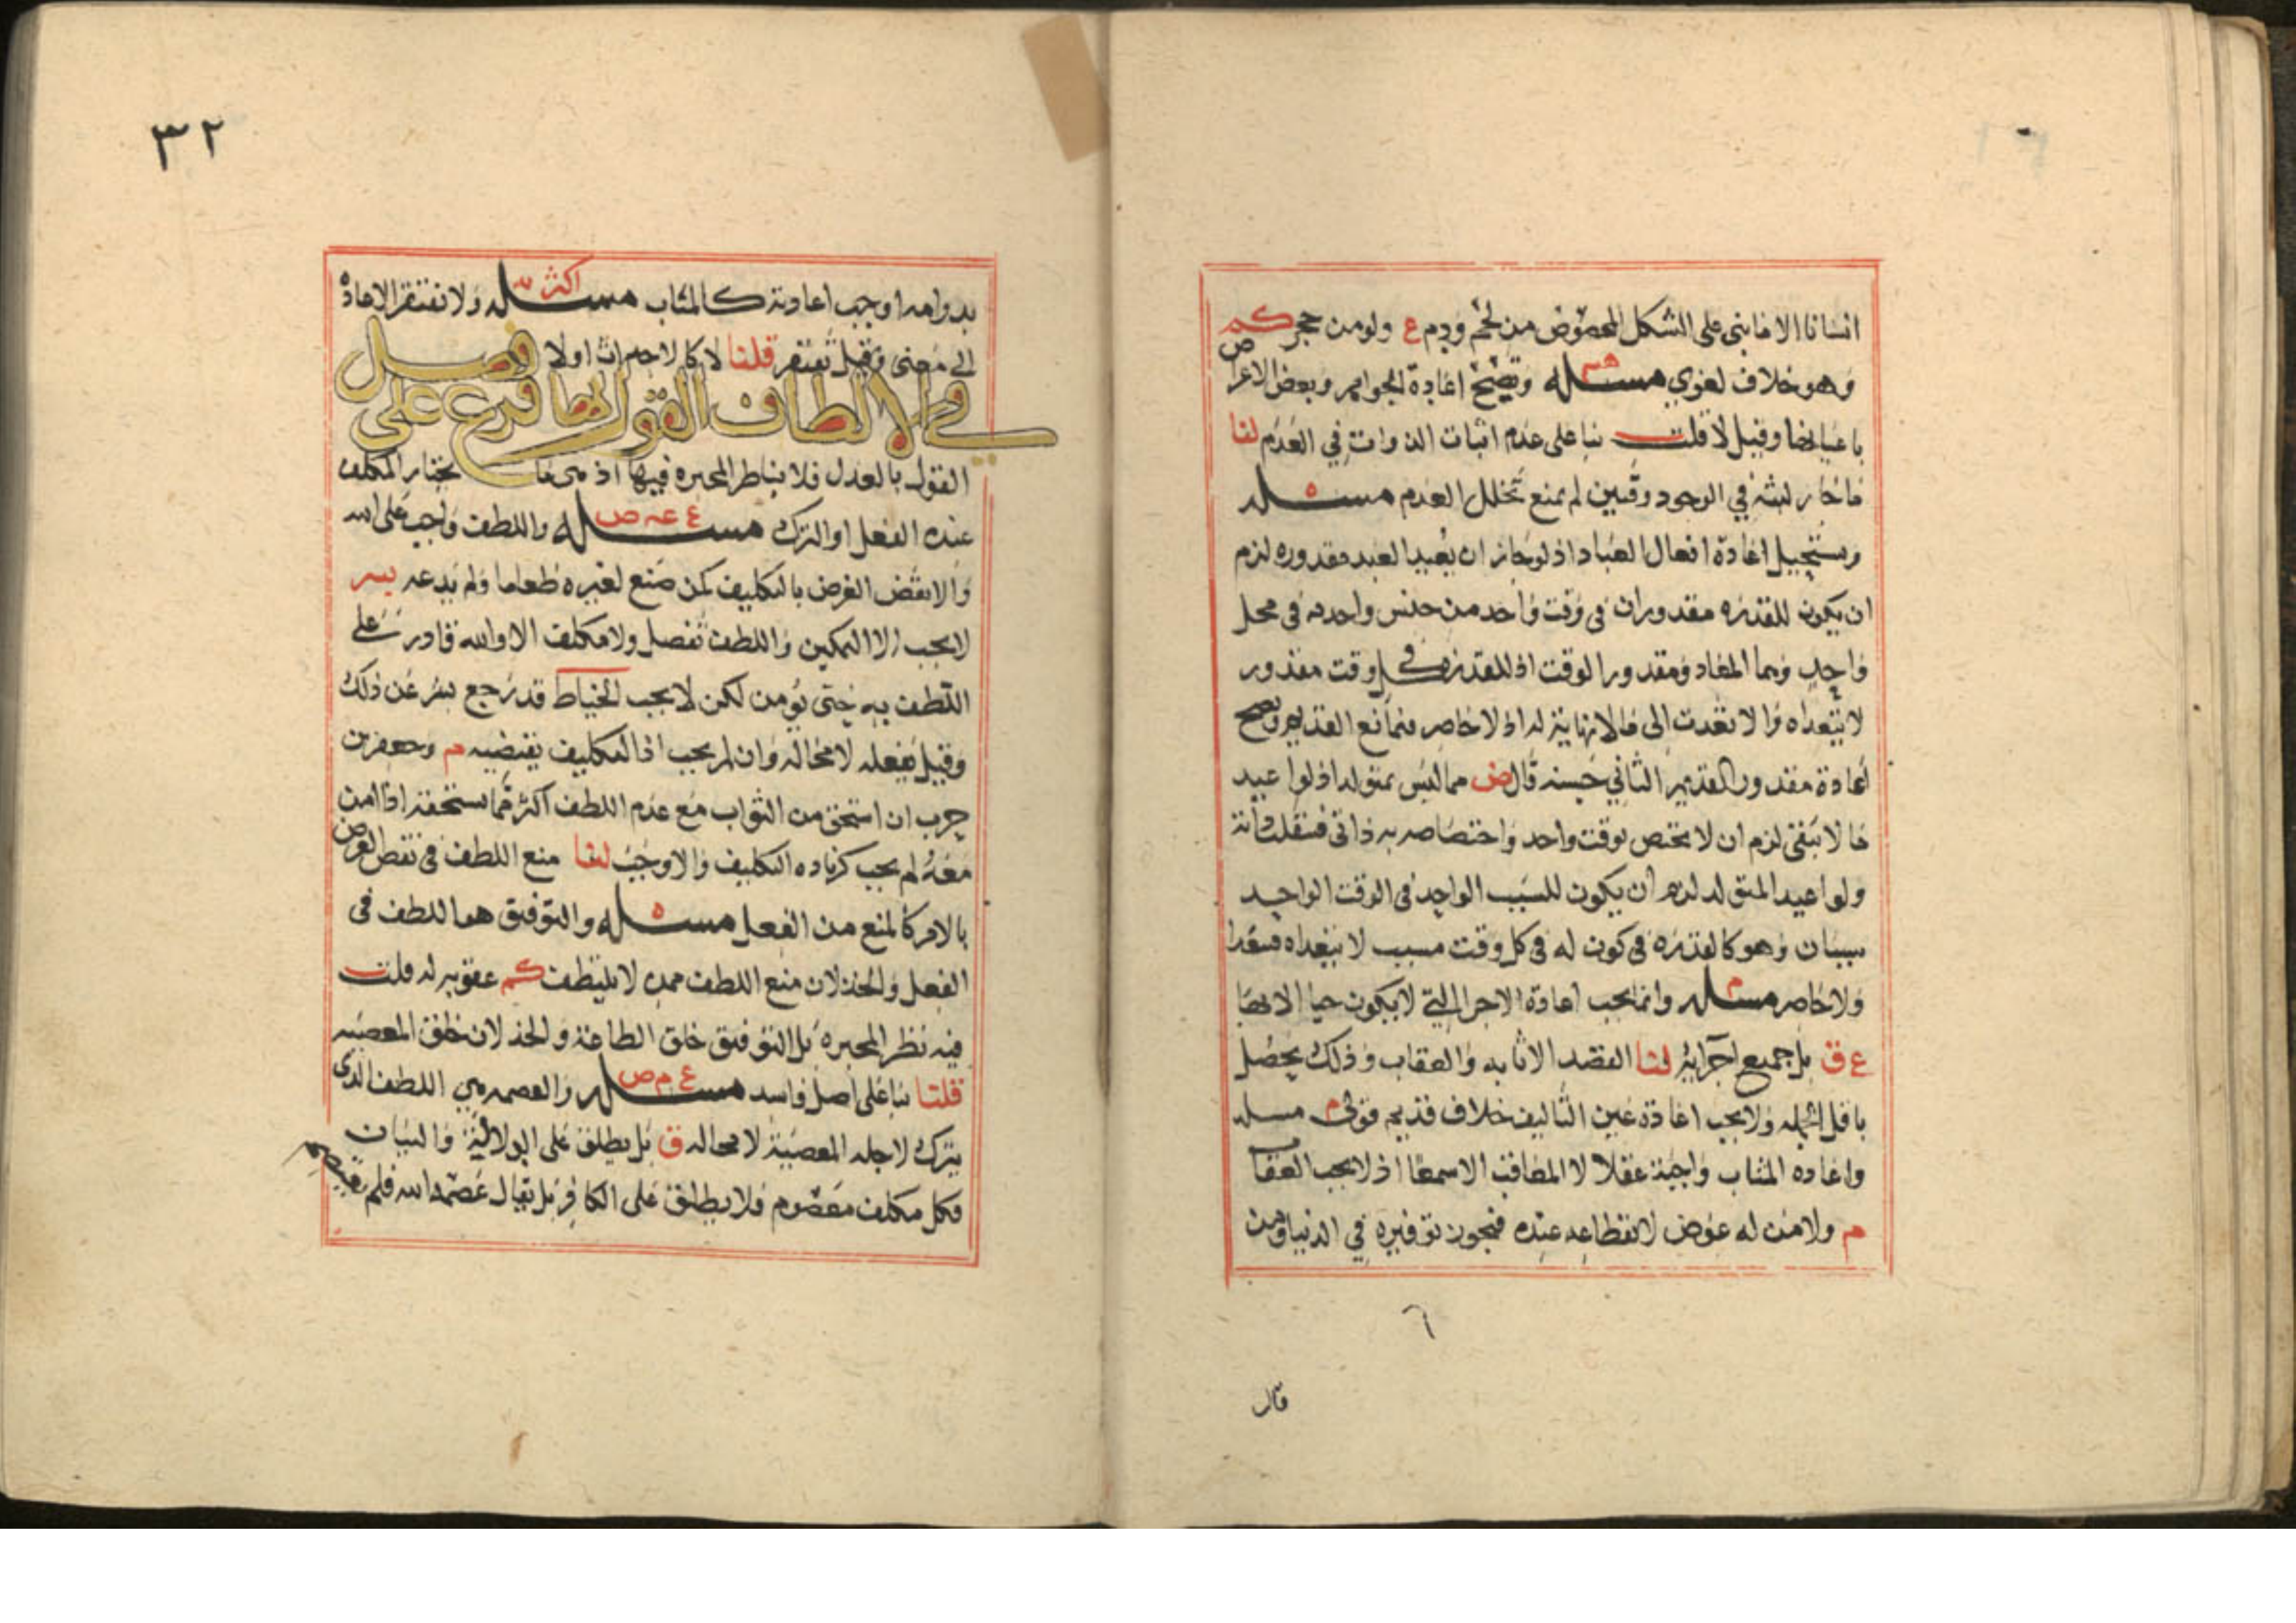 انسانا الا ما بني على الشكل المخصوص من لحم ودم ع ولو من حجر كم
وهو خلاف لغوي مسئله هم وتصح اعادة الجواهر وبعض الاعراض
باعيانها وقيل لا قلت بنا على عدم اثبات الذوات في العدم لنا
ما جاز لبثه في الوجود وقتين لم يمنع تخلل العدم مسئله ه
ويستحيل اعادة افعال العباد اذ لو جاز ان يعيد العبد مقدوره لزم
ان يكون للقدره مقدوران في وقت واحد من جنس واحد في محل
واحد وهما المعاد ومقدور الوقت اذ للقدره في كل وقت مقدور
لا يتعداه والا تعدت الى ما لا نهاية له اذ لا حاصر فتمانع القديم ويصح
اعادة مقدور القديم الثاني جنسه قال ض مما ليس بمتولد اذ لو اعيد
ما لا يبقى لزم ان لا يختص بوقت واحد واختصاصه به ذاتي فينقلب ذاته
ولو اعيد المتولد لزم ان يكون للسبب الواحد في الوقت الواحد
مسببان وهو كالقدره في كون له في كل وقت مسبب لا يتعداه فيتعدا
ولا حاصر مسئله م وانما يجب اعادة الاجزا التي لا يكون حيا الا بها
ع ق بل جميع اجزايه لنا القصد الاثابه والعقاب وذلك يحصل
باقل الجمله ولا يجب اعادة عين التاليف خلاف قديم قولي م مسله
واعاده المثاب واجبة عقلا لا المعاقب الا سمعا اذ لا يجب العقاب
م ولا من له عوض لانقطاعه عنده فيجوز توفيره في الدنيا ومن
قال
٣٢
بدوامه اوجب اعادته كالمثاب مسئله اكثر ولا تفتقر الاعادة
الى معنى وقيل تفتقر قلنا لا كالاحداث اولا فصل
في الالطاف القول بها فرع على
القول بالعدل فلا يناظر المجبره فيها اذ هي ما يختار المكلف
عنده الفعل او الترك مسئله ع عه ص واللطف واجب على الله
والا نقض الغرض بالتكليف كمن صنع لغيره طعاما ولم يدعه بسر
لا يجب الا التمكين واللطف تفضل ولا مكلف الا والله قادر على
اللطف به حتى يؤمن لكن لا يجب الخياط قد رجع بشر عن ذلك
وقيل يفعله لا محاله وان لم يجب اذ التكليف يقتضيه م وجعفر بن
حرب ان استحق من الثواب مع عدم اللطف اكثر مما يستحقه اذا امن
معه لم يجب كزياده التكليف والا وجب لنا منع اللطف في نقض الغرض
بالامر كالمنع من الفعل مسئله ه والتوفيق هو اللطف في
الفعل والخذلان منع اللطف ممن لا يلتطف كم عقوبه له قلت
فيه نظر المجبره بل التوفيق خلق الطاعة والخذلان خلق المعصيه
قلنا بنا على اصل فاسد مسئله ع م ص والعصمه هي اللطف الذي
يترك لاجله المعصية لا محاله ق بل يطلق على الولاية والبيان
فكل مكلف معصوم فلا يطلق على الكافر بل يقال عصمه الله فلم يعتصم